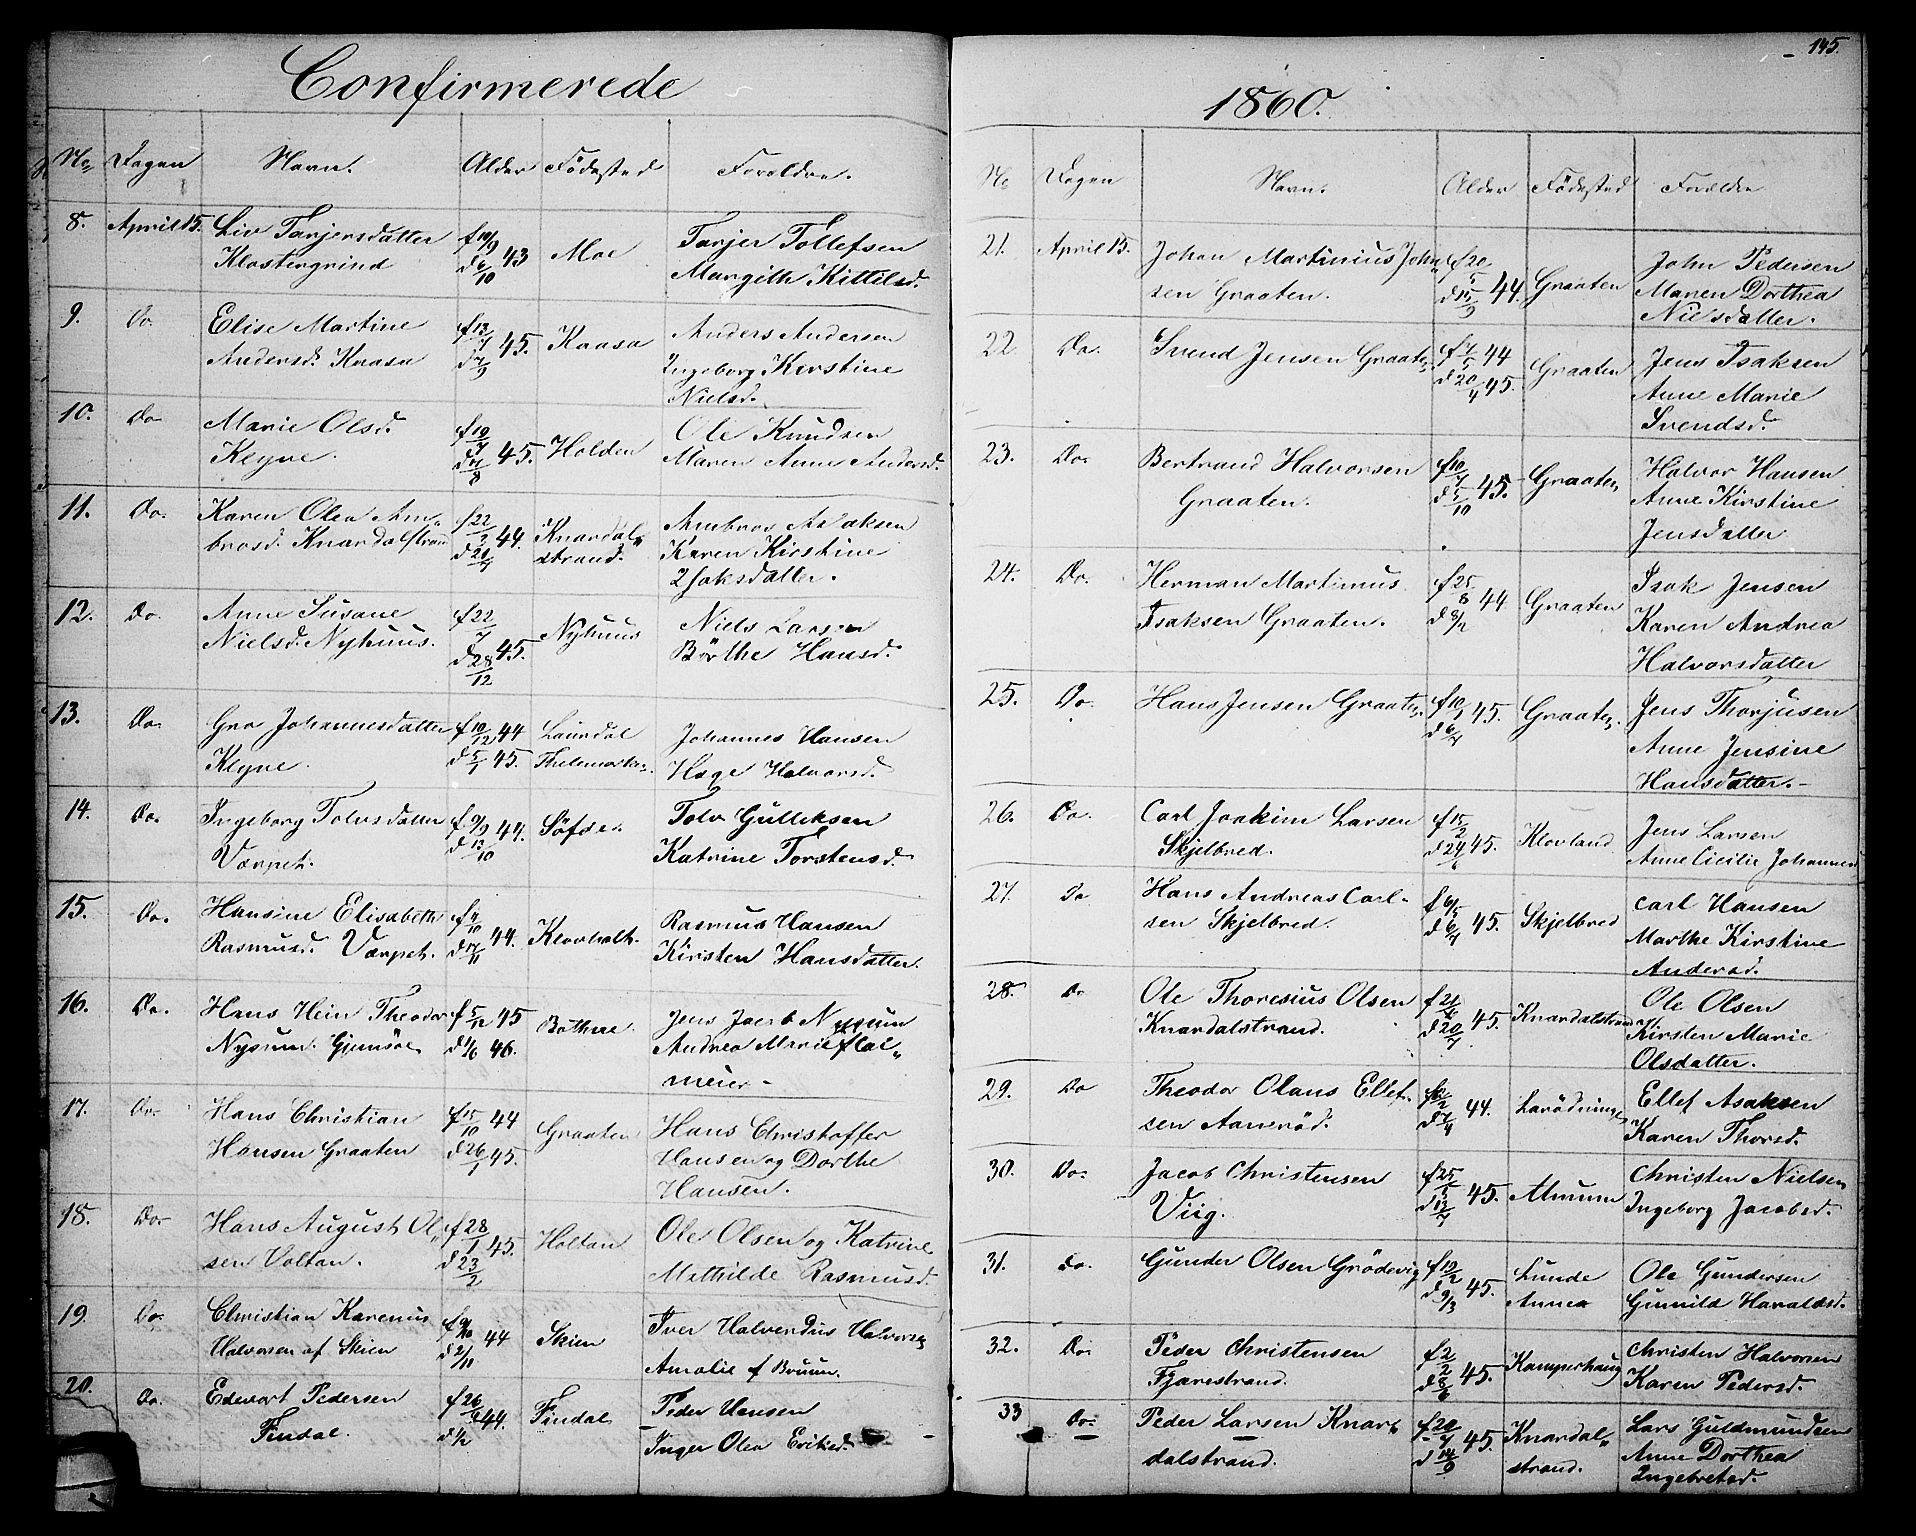 Confirmerede
No Dagen Navn. Alder Födested Forældre.
8. April 15. Liv Tarjersdatter f 10/9 43 Moe Tarjer Tollefsen
Klostergrind d 6/10 Margith Kittilsd.
9. Do. Elise Martine f 13/7 45. Kaasa Anders Andersen
Andersd. Kaasa d 7/9 Ingeborg Kirstine
Nielsd.
10. Do Marie Olsd. f 19/7 45. Holden Ole Knudsen
Kleyve. Maren Anne Andersd.
11. Do. Karen Olea Am„ f 22/2 44. Knardal„ Ambros Asaksen
brosd. Knardalstran d 20/4 strand. Karen Kirstine
Isaksdatter.
12. Do. Anne Susane f 22/7 45. Nyhuus Niels Larsen
Nielsd. Nyhuus. d 28/12 Börthe Hansd.
13. Do. Gro Johannesdatter f 10/12 44 Laurdal Johannes Hansen
Kleyve. d 5/1 45. Thelemarken. Hege Halvorsd.
14. Do. Ingeborg Tolvsdatter f 9/9 44. Söfde. Tolv Gulleksen
Værpet. d 13/10 Katrine Torstensd.
15. Do. Hansine Elisabeth f 4/10 44. Klovholt. Rasmus Hansen
Rasmusd. Værpet. d 17/11 Kirsten Hansdatter.
16. Do. Hans Hein Theodor f 5/12 45 Bothne. Jens Jacob Nysum
Nysum. Gjemsöe d 1/6 46. Andrea Marie Hol„
meier -
17. Do. Hans Christian f 15/10 44 Graaten Hans Christoffer
Hansen Graaten d 26/1 45. Hansen og Dorthe
Hansen.
18. Do. Hans August Ol„ f 28/1 45. Holtan Ole Olsen og Katrine
sen Voltan. d 23/2 Mathilde Rasmusd.
19. Do. Christian Karenius f 9/10 44 Skien Iver Halvordus Halvorsen
Halvorsen af Skien d 2/11 Amalie f Bruun.
20. Do. Edevart Pedersen f 26/9 44. Findal Peder Hansen
Findal. d 1/12 Inger Olea Eriksd.
145.
1860.
No Dagen Navn. Alder Födested Forældre
21. April 15. Johan Martinius John„ f 20/5 44. Graaten John Pedersen
sen Graaten. d 15/9 Maren Dorthea
Nielsdatter.
22. Do. Svend Jensen Graaten. f 7/5 44 Graaten Jens Isaksen
d 20/4 45. Anne Marie
Svendsd.
23. Do. Bertrand Halvorsen f 10/7 45. Graaten, Halvor Hansen
Graaten. d 5/10 Anne Kirstine
Jensdatter
24. Do. Herman Martinius f 25/8 44 Graaten Isak Jensen
Isaksen Graaten. d 8/12 Karen Andrea
Halvorsdatter
25. Do. Hans Jensen Graaten. f 10/1 45. Graaten. Jens Thorjusen
d 6/4 Anne Jensine
Hansdatter. -
26. Do. Carl Joakim Larsen f 15/2 45. Klovland Jens Larsen
Skjelbred. d 24/6 Anne Cicilie Johannes
27. Do Hans Andreas Carl- f 6/5 45. Skjelbred Carl Hansen
sen Skjelbred. d 6/7 Marthe Kirstine
Andersd.
28. Do Ole Thoresius Olsen f 21/6 45. Knardalstrand Ole Olsen
Knardalstrand. d 20/7 Kirsten Marie
Olsdatter.
29. Do Theodor Olaus Ellef- 44. Ellef Asaksen
sen Aaneröd. d 7/4 Karen Thorsd.
30. Do. Jacob Christensen f 25/5 45. Christen Nielsen
Viig. d 13/7 Ingeborg Jacobsd.
31. Do. Gunder Olsen Grödevig f 12/2 45. Lunde Ole Gundersen
d 9/3 Annex Gunnild Haraldsd.
32. Do. Peder Christensen f 2/2 45. Kamperhaug Christen Halvorsen
Fjærestrand. d 8/6 Karen Pedersd.
33 Do. Peder Larsen Knar„ f 20/7 45. Knardal„ Lars Guldmundsen
dalstrand. d 14/9 strand. Anne Dorthea
Ingebretsd.